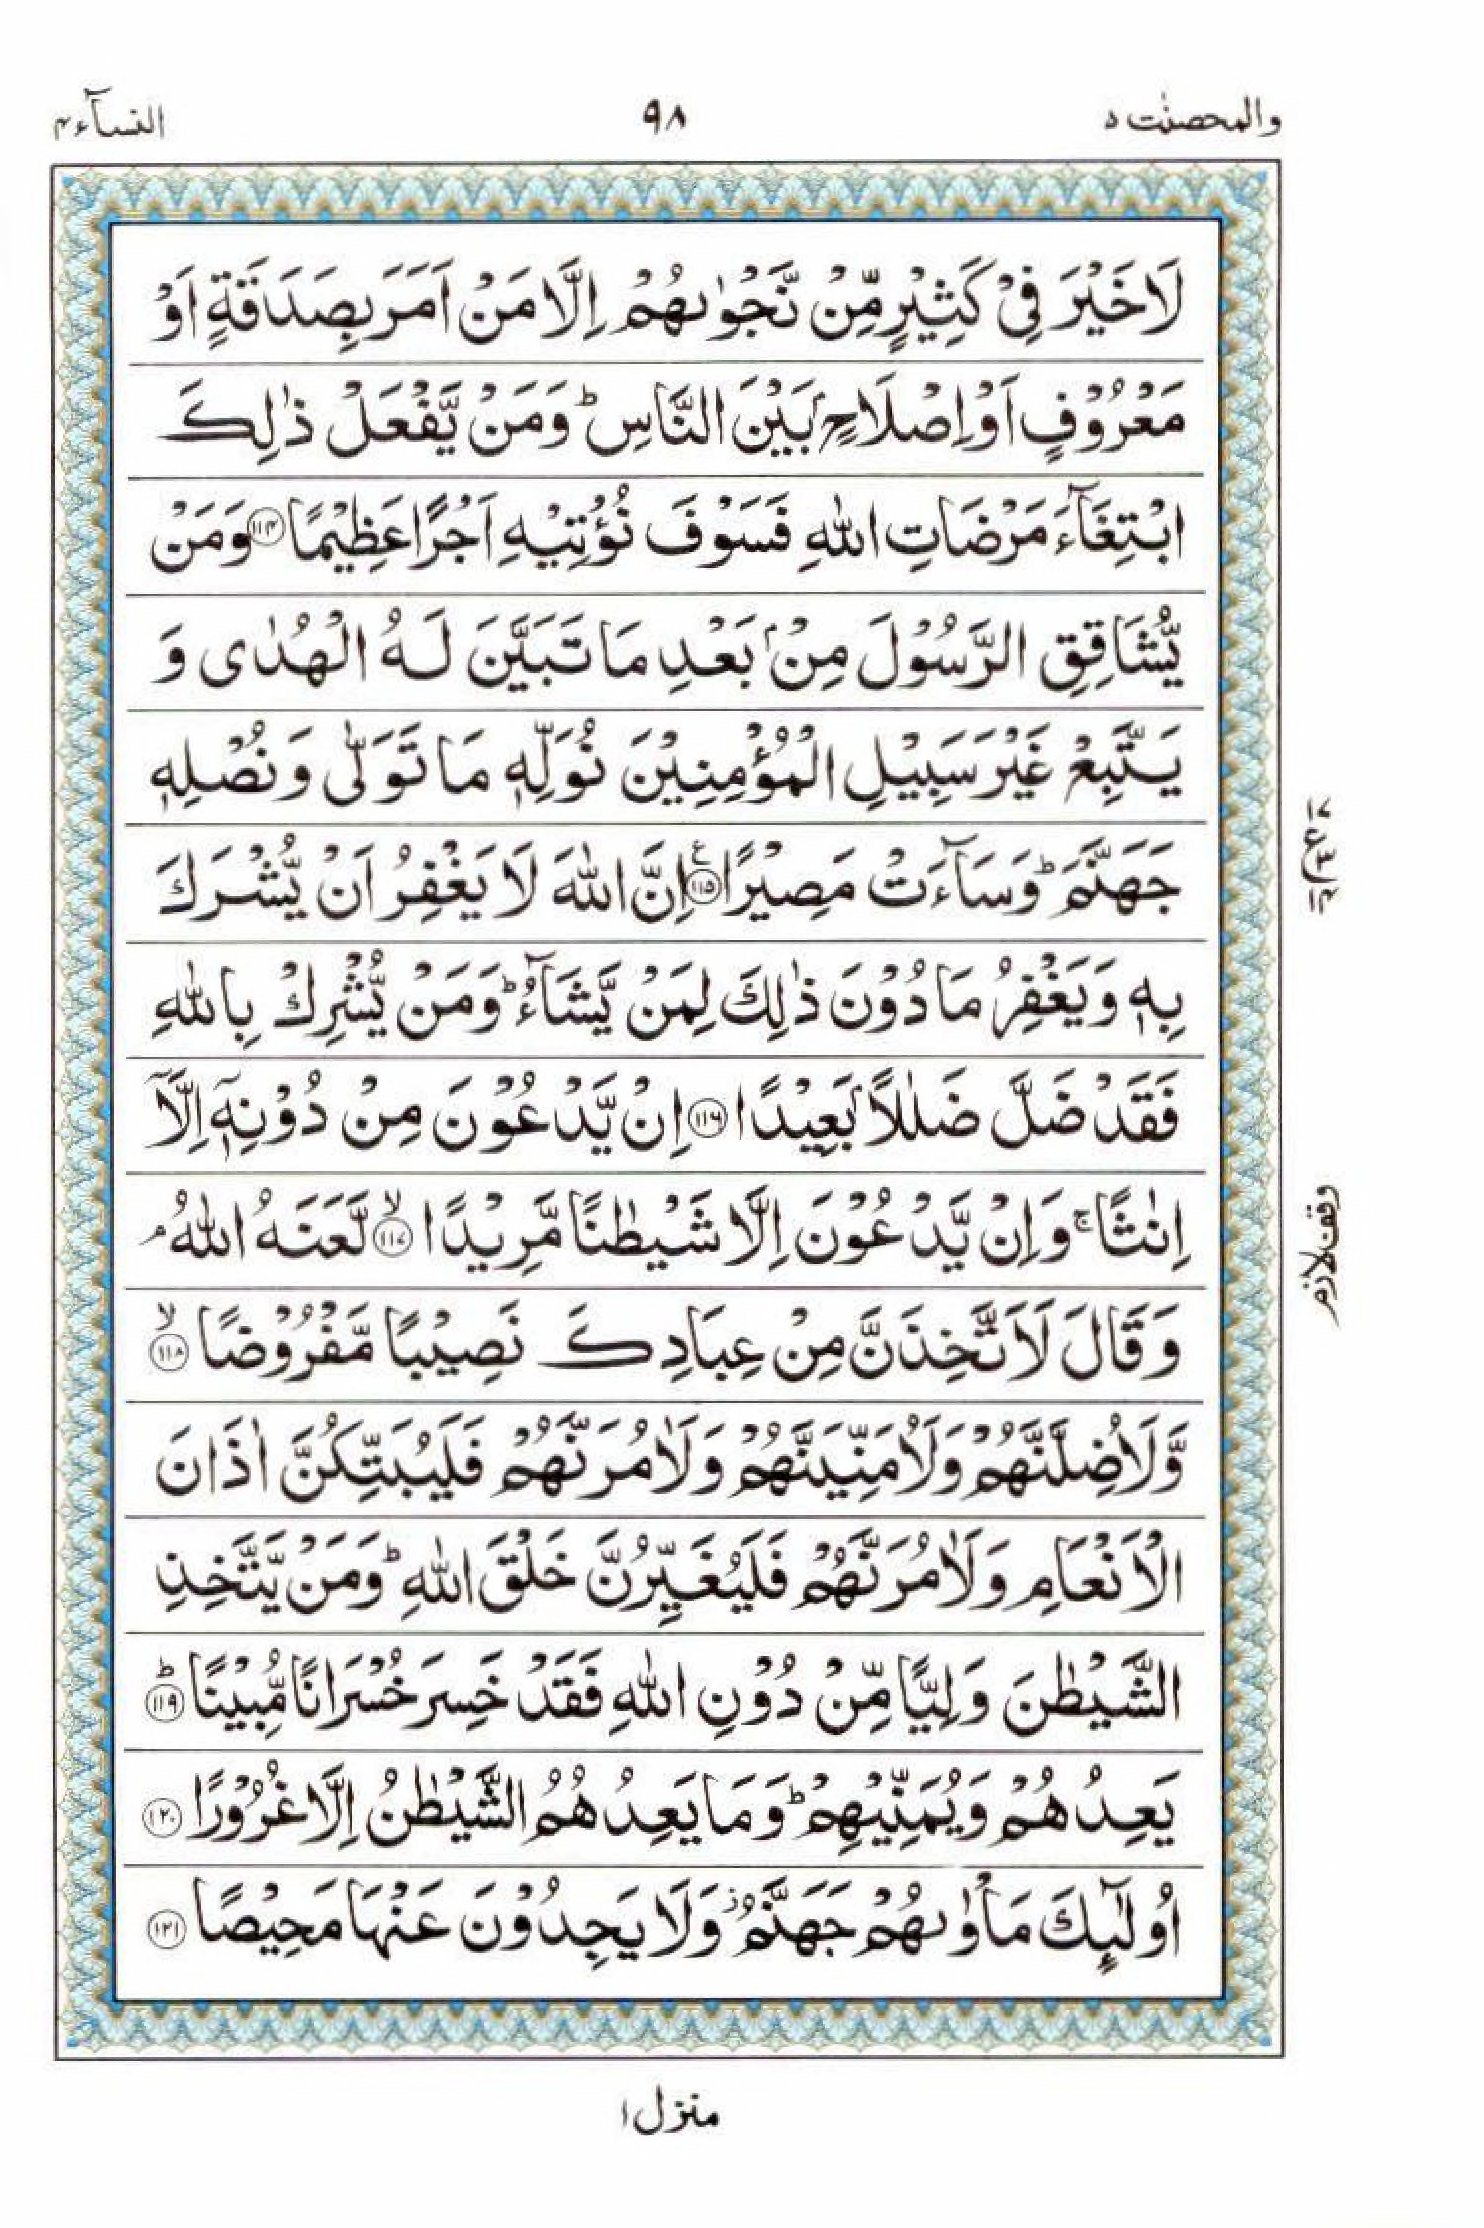 والمحصنٰت ٥
٩٨
النسآء ٤
لَا خَيْرَ فِىْ كَثِيْرٍ مِّنْ نَّجْوٰىهُمْ اِلَّا مَنْ اَمَرَ بِصَدَقَةٍ اَوْ
مَعْرُوْفٍ اَوْ اِصْلَاحٍۭ بَيْنَ النَّاسِ ؕ وَمَنْ يَّفْعَلْ ذٰلِكَ
ابْتِغَآءَ مَرْضَاتِ اللّٰهِ فَسَوْفَ نُؤْتِيْهِ اَجْرًا عَظِيْمًا ﴿١١٤﴾ وَمَنْ
يُّشَاقِقِ الرَّسُوْلَ مِنْۢ بَعْدِ مَا تَبَيَّنَ لَهُ الْهُدٰى وَ
يَتَّبِعْ غَيْرَ سَبِيْلِ الْمُؤْمِنِيْنَ نُوَلِّهٖ مَا تَوَلّٰى وَنُصْلِهٖ
جَهَنَّمَ ؕ وَسَآءَتْ مَصِيْرًا ﴿١١٥﴾ ع اِنَّ اللّٰهَ لَا يَغْفِرُ اَنْ يُّشْرَكَ
بِهٖ وَيَغْفِرُ مَا دُوْنَ ذٰلِكَ لِمَنْ يَّشَآءُ ؕ وَمَنْ يُّشْرِكْ بِاللّٰهِ
فَقَدْ ضَلَّ ضَلٰلًاۢ بَعِيْدًا ﴿١١٦﴾ اِنْ يَّدْعُوْنَ مِنْ دُوْنِهٖۤ اِلَّاۤ
اِنٰثًا ۚ وَاِنْ يَّدْعُوْنَ اِلَّا شَيْطٰنًا مَّرِيْدًا ۙ﴿١١٧﴾ لَّعَنَهُ اللّٰهُ ۘ
وَقَالَ لَاَتَّخِذَنَّ مِنْ عِبَادِكَ نَصِيْبًا مَّفْرُوْضًا ۙ﴿١١٨﴾
وَّلَاُضِلَّنَّهُمْ وَلَاُمَنِّيَنَّهُمْ وَلَاٰمُرَنَّهُمْ فَلَيُبَتِّكُنَّ اٰذَانَ
الْاَنْعَامِ وَلَاٰمُرَنَّهُمْ فَلَيُغَيِّرُنَّ خَلْقَ اللّٰهِ ؕ وَمَنْ يَّتَّخِذِ
الشَّيْطٰنَ وَلِيًّا مِّنْ دُوْنِ اللّٰهِ فَقَدْ خَسِرَ خُسْرَانًا مُّبِيْنًا ؕ﴿١١٩﴾
يَعِدُهُمْ وَيُمَنِّيْهِمْ ؕ وَمَا يَعِدُهُمُ الشَّيْطٰنُ اِلَّا غُرُوْرًا ﴿١٢٠﴾
اُولٰٓئِكَ مَاْوٰىهُمْ جَهَنَّمُ ؗ وَلَا يَجِدُوْنَ عَنْهَا مَحِيْصًا ﴿١٢١﴾
وقف لازم
منزل ١